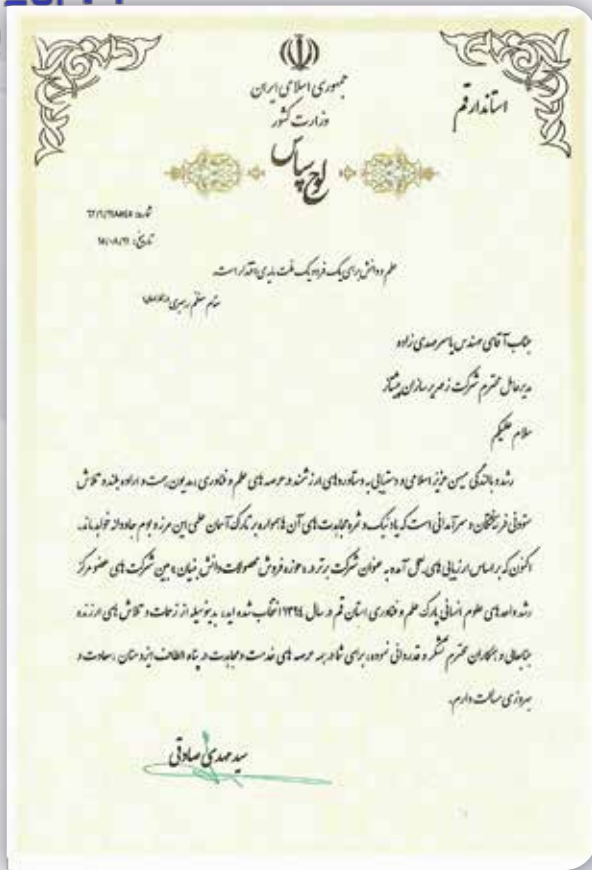 جمهوری اسلامی ایران
وزارت کشور
استاندار قم
لوح سپاس
شماره:
تاریخ:
علم و دانش برای یک فرد و یک ملت مایه‌ی اقتدار است.
مقام معظم رهبری
جناب آقای مهندس یاسر صمدی زاده
مدیرعامل محترم شرکت زمهریر سازان پیشتاز
سلام علیکم
رشد و بالندگی میهن عزیز اسلامی و دستیابی به دستاوردهای ارزشمند در عرصه های علم و فناوری، مدیون همت و اراده بلند و تلاش
ستودنی فرزانگان و سرآمدانی است که یاد نیک و ثمره مجاهدت های آن ها همواره بر تارک آسمان علمی این مرز و بوم جاودانه خواهد ماند.
اکنون که بر اساس ارزیابی های بعمل آمده به عنوان شرکت برتر در حوزه فروش محصولات دانش بنیان در بین شرکت های عضو مرکز
رشد واحدهای علوم انسانی پارک علم و فناوری استان قم در سال ۱۳۹۴ انتخاب شده اید، بدینوسیله از زحمات و تلاش های ارزنده
جنابعالی و همکاران محترم تشکر و قدردانی نموده، برای شما در همه عرصه های خدمت و مجاهدت در پناه الطاف ایزد منان، سعادت و
بهروزی مسالت دارم.
سید مهدی صادقی